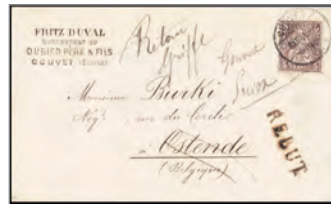 FRITZ DUVAL
SUCCESSEUR DE
DUBIED PÈRE & FILS
COUVET (SUISSE)
Retour
Griffe
Couvet
Suisse
Monsieur Burki
Négt. rue du Cercle
à Ostende
(Belgique)
REBUT